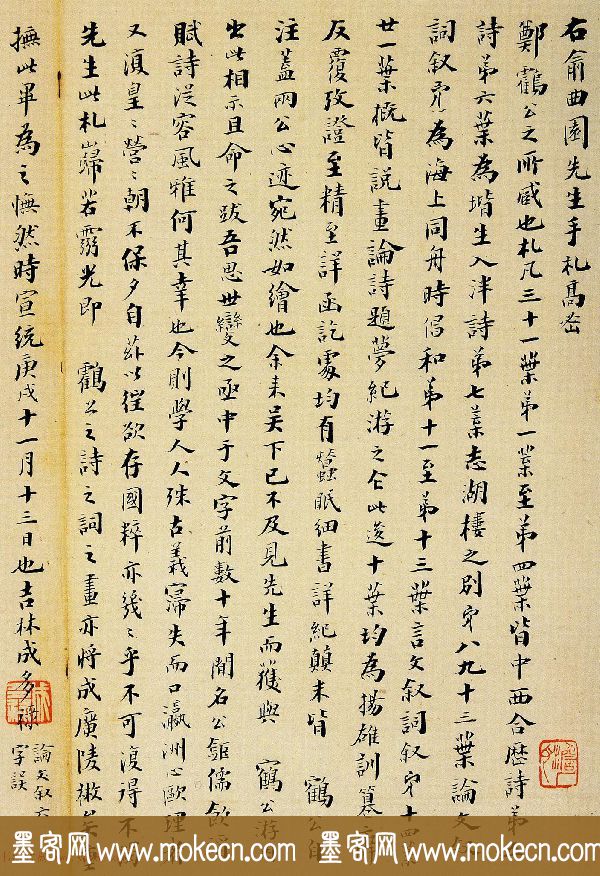 右俞曲園先生手札高密
鄭鶴公之所藏也札凡三十一葉第一葉至第四葉皆中西合歷詩第
詩第六葉為壻生入泮詩第七葉志湖樓之別第八九十三葉論文叙
詞叙第為海上同舟時倡和第十一至第十三葉言文叙詞叙第十四葉
廿一葉概皆說畫論詩題夢紀游之作此後十葉均為揚雄訓纂
反覆攷證至精至詳函訖處均有蠶眠細書詳紀顛末皆 鶴公自
注蓋兩公心迹宛然如繪也余來吳下已不及見先生而獲與 鶴公游
出此相示且命之跋吾思世變之亟中于文字前數十年間名公鉅儒飲
賦詩從容風雅何其幸也今則學人人殊古義寖失而口瀛洲心歐理
又復皇皇營營朝不保夕自茲以往欲存國粹亦幾幾乎不可復得不
先生此札巋若靈光即 鶴公之詩之詞之畫亦將成廣陵散矣
撫此畢為之憮然時宣統庚戌十一月十三日也吉林成多祿
論文叙六
字誤
墨客网 www.mokecn.com 墨客网 www.mokecn.com